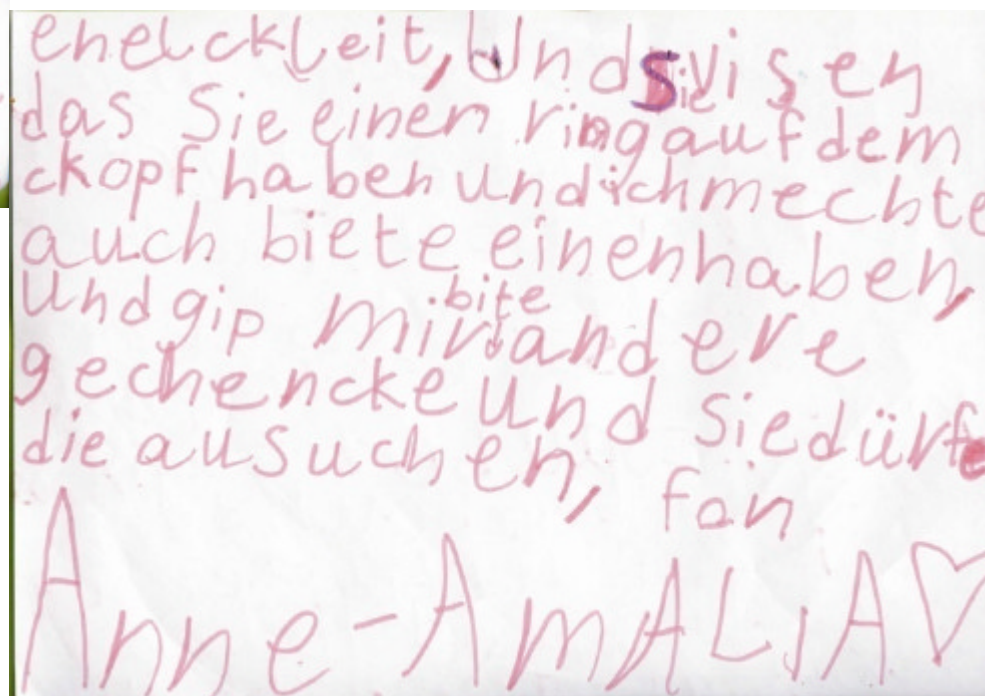 enelckleit, Und Sie visen
das Sie einen ring auf dem
ckopf haben und ich mechte
auch biete einen haben,
Und gip mir bite andere
gechencke und Sie dürfe
die ausuchen, fon
Anne-AmALiA♡